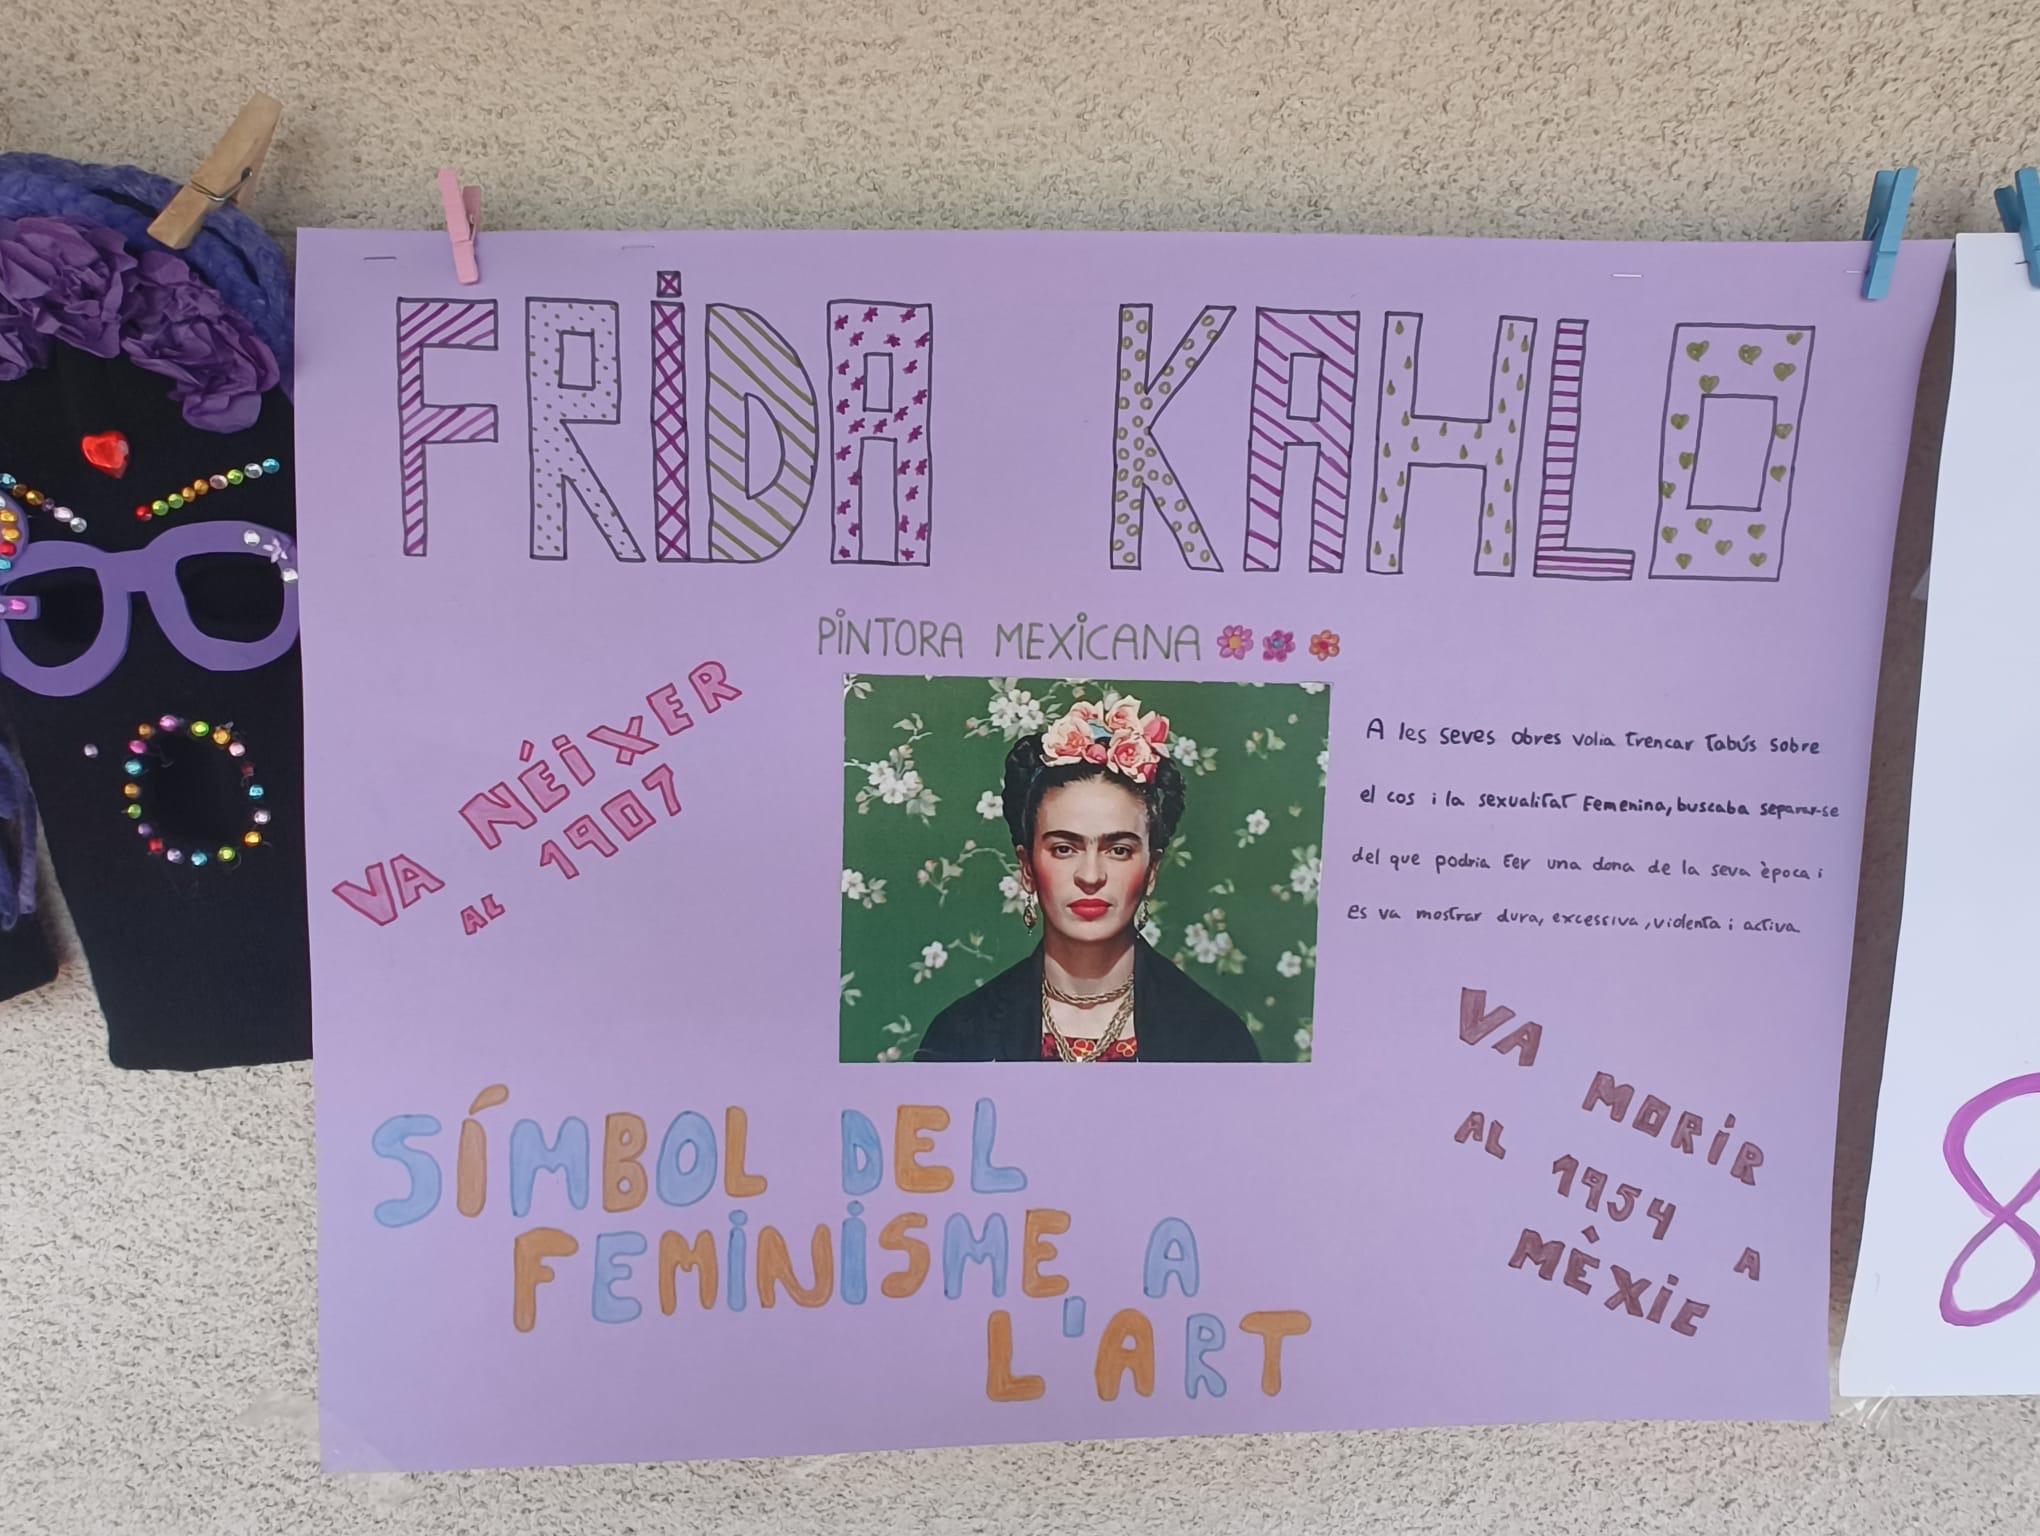 FRIDA KAHLO
PINTORA MEXICANA
VA NÉIXER
AL 1907
A les seves obres volia trencar tabús sobre
el cos i la sexualitat femenina, buscaba separar-se
del que podria fer una dona de la seva època i
es va mostrar dura, excessiva, violenta i activa
VA MORIR
AL 1954 A
MÈXIC
SÍMBOL DEL
FEMINISME A
L'ART
8